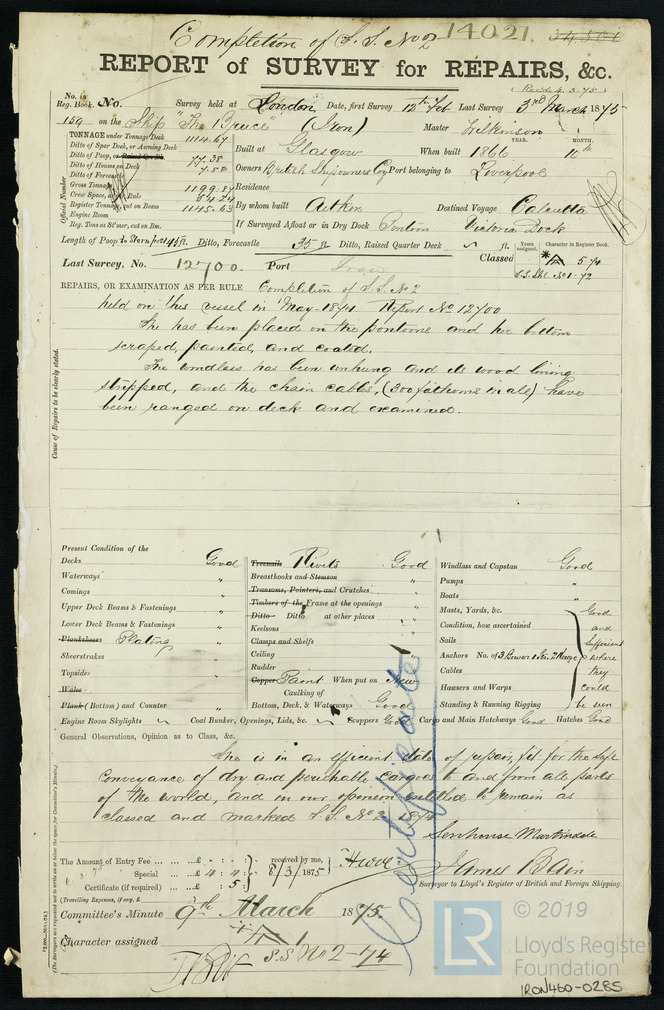 Completion of S.S. No 2
14021
REPORT of SURVEY for REPAIRS, &c.
(Recd 4.3.75)
No. in Reg. Book. No. Survey held at London Date, first Survey 12th Feb Last Survey 3rd March 1875
159 on the Ship "The Bruce" (Iron) Master Wilkinson
TONNAGE under Tonnage Deck 1114.67
Ditto of Spar Deck, or Awning Deck
Ditto of Poop, or Raised Qr. Dk. 77.38
Ditto of Houses on Deck 7.82
Ditto of Forecastle
Gross Tonnage 1199.87
Crew Space, as per Rule 54.24
Register Tonnage, cut on Beam 1145.63
Engine Room
Reg. Tons as St'mer, cut on Bm.
Official Number
Built at Glasgow When built YEAR. 1866 MONTH. 10th
Owners British Shipowners Coy Port belonging to Liverpool
Residence
By whom built Aitken Destined Voyage Calcutta
If Surveyed Afloat or in Dry Dock Pontoon Victoria Dock
Length of Poop to Stern post 45 ft. Ditto, Forecastle 35 ft Ditto, Raised Quarter Deck ft.
Classed Years assigned. Character in Register Book.
A 5.74
S.S. No1-72
Last Survey, No. 12700. Port Iron
REPAIRS, OR EXAMINATION AS PER RULE Completion of S.S. No 2
held on this vessel in May 1874 Report No 12700
She has been placed on the pontoons and her bottom
scraped, painted, and coated.
The windlass has been unhung and its wood lining
stripped, and the chain cables, (300 fathoms in all) have
been ranged on deck and examined.
Cause of Repairs to be clearly stated.
Present Condition of the
Decks Good
Waterways "
Comings "
Upper Deck Beams & Fastenings "
Lower Deck Beams & Fastenings "
Planksheers Plating "
Sheerstrakes "
Topsides "
Wales
Plank (Bottom) and Counter "
Treenails Rivets Good
Breasthooks and Stemson "
Transoms, Pointers, and Crutches "
Timbers of the Frame at the openings "
Ditto Ditto at other places "
Keelsons "
Clamps and Shelfs "
Ceiling "
Rudder "
Copper Paint When put on New
Caulking of
Bottom, Deck, & Waterways Good
Windlass and Capstan Good
Pumps "
Boats "
Masts, Yards, &c. Good
Condition, how ascertained and
Sails Sufficient
Anchors No. of 3 Bower 1 Str. 2 Kedge where
Cables they
Hawsers and Warps could
Standing & Running Rigging be seen
Engine Room Skylights Coal Bunker, Openings, Lids, &c. Scuppers Good Cargo and Main Hatchways Good Hatches Good
General Observations, Opinion as to Class, &c.
She is in an efficient state of repair, fit for the safe
conveyance of dry and perishable cargoes to and from all parts
of the world, and in our opinion entitled to remain as
classed and marked S.S. No 2 1874
Certificate
Senhouse Martindale
James Bain
Surveyor to Lloyd's Register of British and Foreign Shipping.
The Amount of Entry Fee ... ... £ : :
Special ... £ 4 : 4 : received by me, 8/3/1875
Certificate (if required) ... £ : 5 :
(Travelling Expenses, if any, £ )
Committee's Minute 9th March 1875.
Character assigned A 1
S.S. No 2-74
(The Surveyors are requested not to write on or below the space for Committee's Minute.)
LR
© 2019
Lloyd's Register
Foundation
IRON460-0285